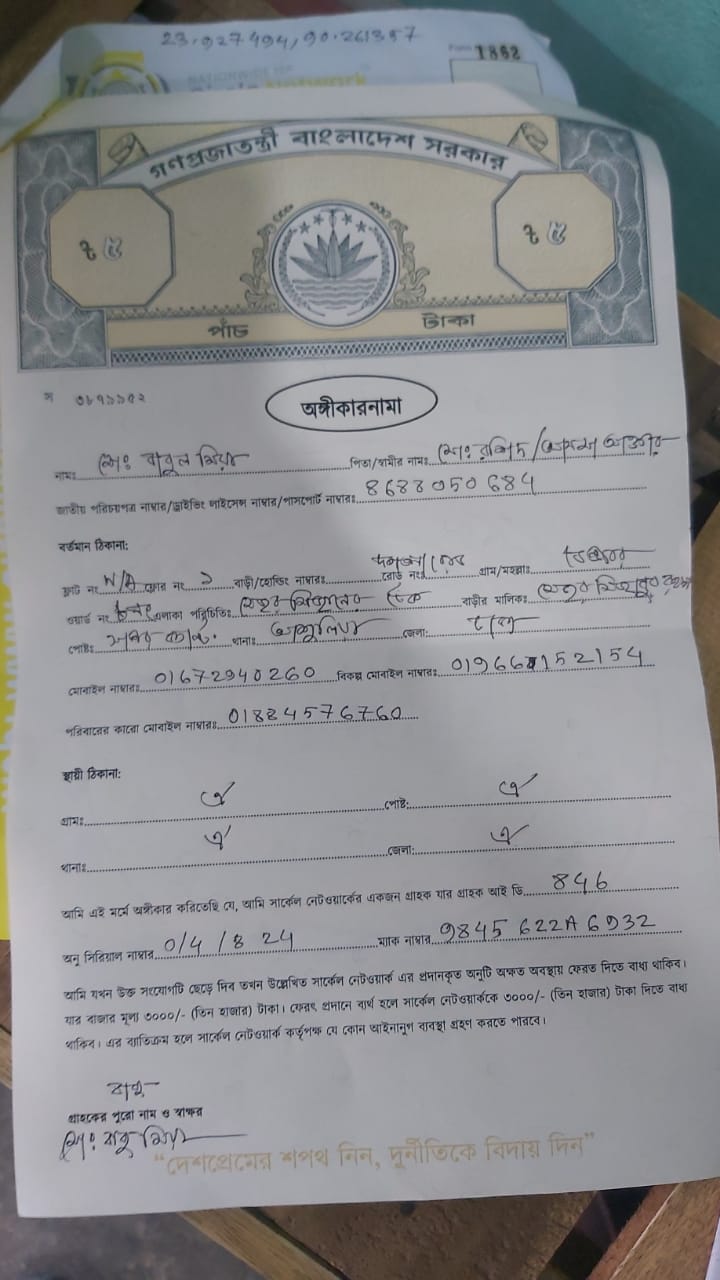 23.927494,90.261357
Form 1862
NATIONWIDE ISP
Network
গণপ্রজাতন্ত্রী বাংলাদেশ সরকার
৳ ৫ ৳ ৫
পাঁচ টাকা
৩৮৭১১৫২
অঙ্গীকারনামা
নামঃ মোঃ বাবুল মিয়া পিতা/স্বামীর নামঃ মোঃ রশিদ /
জাতীয় পরিচয়পত্র নাম্বার/ড্রাইভিং লাইসেন্স নাম্বার/পাসপোর্ট নাম্বারঃ 8688050684
বর্তমান ঠিকানা:
ফ্লাট নং N/A ফ্লোর নং ১ বাড়ী/হোল্ডিং নাম্বারঃ রোড নংঃ গ্রাম/মহল্লাঃ
ওয়ার্ড নং এলাকা পরিচিতিঃ বাড়ীর মালিকঃ
পোষ্টঃ থানাঃ আশুলিয়া জেলা: ঢাকা
মোবাইল নাম্বারঃ 01672940260 বিকল্প মোবাইল নাম্বারঃ
পরিবারের কারো মোবাইল নাম্বারঃ 01884576760
স্থায়ী ঠিকানা:
গ্রামঃ ঐ পোষ্ট: ঐ
থানাঃ ঐ জেলা: ঐ
আমি এই মর্মে অঙ্গীকার করিতেছি যে, আমি সার্কেল নেটওয়ার্কের একজন গ্রাহক যার গ্রাহক আই ডি 846
অনু সিরিয়াল নাম্বার 0/4 /8 24 ম্যাক নাম্বার 9845 622A 6932
আমি যখন উক্ত সংযোগটি ছেড়ে দিব তখন উল্লেখিত সার্কেল নেটওয়ার্ক এর প্রদানকৃত অনুটি অক্ষত অবস্থায় ফেরত দিতে বাধ্য থাকিব।
যার বাজার মূল্য ৩০০০/- (তিন হাজার) টাকা। ফেরৎ প্রদানে ব্যর্থ হলে সার্কেল নেটওয়ার্ককে ৩০০০/- (তিন হাজার) টাকা দিতে বাধ্য
থাকিব। এর ব্যতিক্রম হলে সার্কেল নেটওয়ার্ক কর্তৃপক্ষ যে কোন আইনানুগ ব্যবস্থা গ্রহণ করতে পারবে।
বাবু
গ্রাহকের পুরো নাম ও স্বাক্ষর
মোঃ বাবু মিয়া
“দেশপ্রেমের শপথ নিন, দুর্নীতিকে বিদায় দিন”